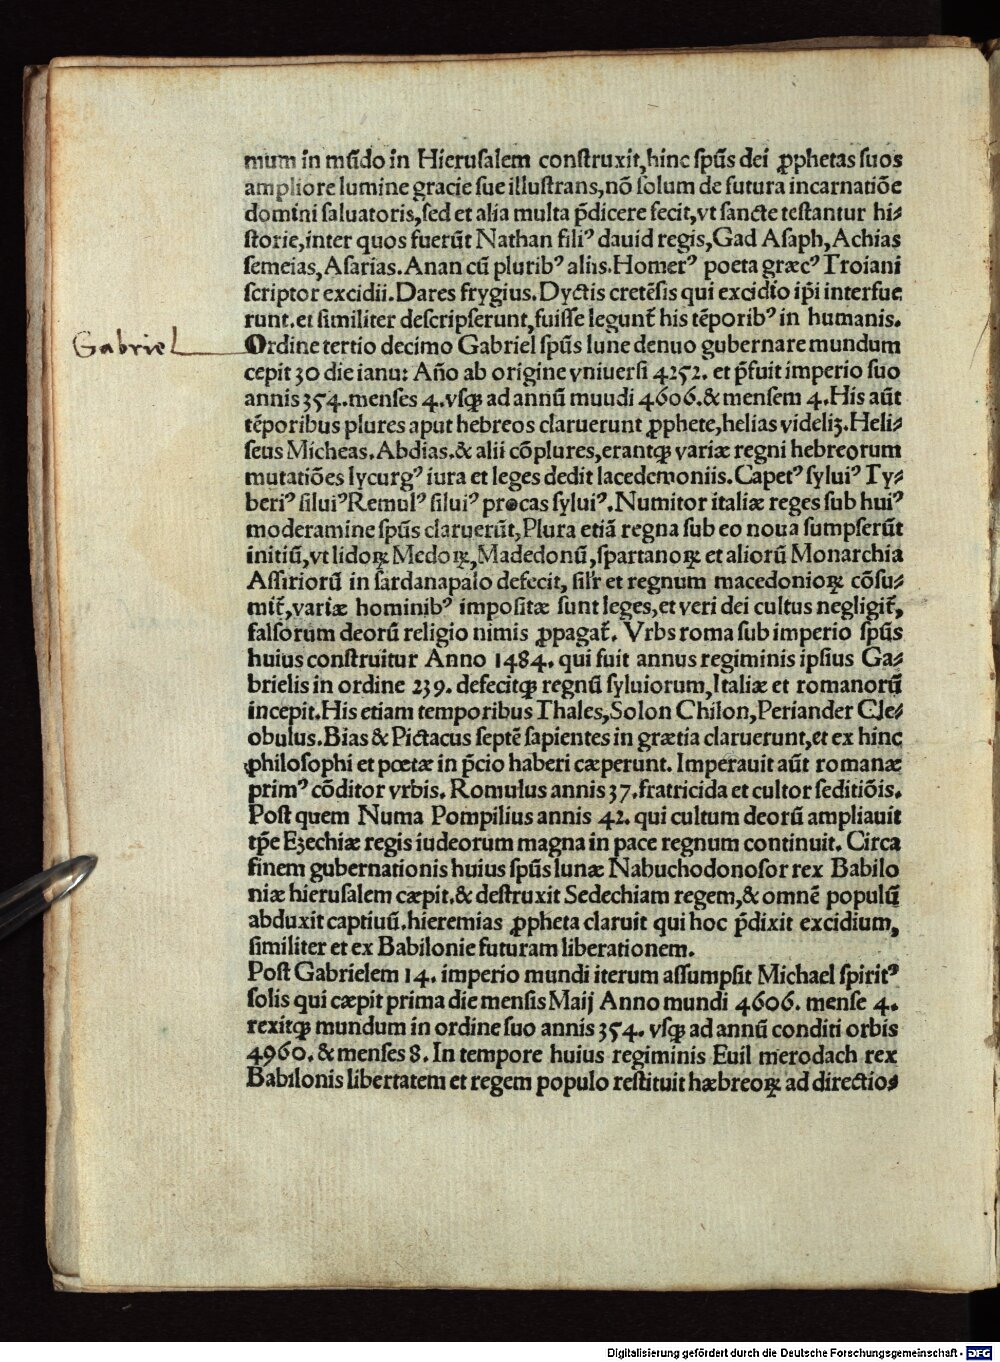 mum in mūdo in Hierusalem construxit, hinc spūs dei ꝓphetas suos
ampliore lumine gracie sue illustrans, nō solum de futura incarnatiōe
domini saluatoris, sed et alia multa p̄dicere fecit, vt sancte testantur hi⸗
storie, inter quos fuerūt Nathan filiꝰ dauid regis, Gad Asaph, Achias
semeias, Asarias. Anan cū pluribꝰ aliis. Homerꝰ poeta græcꝰ Troiani
scriptor excidii. Dares frygius. Dyctis cretēsis qui excidio ip̄i interfue
runt. et similiter descripserunt, fuisse legunt̄ his tēporibꝰ in humanis.
Gabriel
Ordine tertio decimo Gabriel spūs lune denuo gubernare mundum
cepit 30 die ianu: Año ab origine vniuersi 4252. et p̄fuit imperio suo
annis 354. menses 4. vsqꝫ ad annū muudi 4606. & mensem 4. His aūt
tēporibus plures aput hebreos claruerunt ꝓphete, helias videliꝫ. Heli⸗
seus Micheas. Abdias. & alii cōplures, erantqꝫ variæ regni hebreorum
mutatiōes lycurgꝰ iura et leges dedit lacedemoniis. Capetꝰ syluiꝰ Ty⸗
beriꝰ siluiꝰ Remulꝰ siluiꝰ procas syluiꝰ. Numitor italiæ reges sub huiꝰ
moderamine spūs claruerūt, Plura etiā regna sub eo noua sumpserūt
initiū, vt lidoꝝ Medoꝝ, Madedonū, spartanoꝝ et aliorū Monarchia
Assiriorū in sardanapalo defecit, silr̄ et regnum macedonioꝝ cōsu⸗
mit̄, variæ hominibꝰ impositæ sunt leges, et veri dei cultus negligit̄,
falsorum deorū religio nimis ꝓpagat̄. Vrbs roma sub imperio spūs
huius construitur Anno 1484. qui fuit annus regiminis ipsius Ga⸗
brielis in ordine 239. defecitqꝫ regnū syluiorum, Italiæ et romanorū
incepit. His etiam temporibus Thales, Solon Chilon, Periander Cle⸗
obulus. Bias & Pictacus septē sapientes in grætia claruerunt, et ex hinc
philosophi et poetæ in p̄cio haberi cæperunt. Imperauit aūt romanæ
primꝰ cōditor vrbis. Romulus annis 37. fratricida et cultor seditiōis.
Post quem Numa Pompilius annis 42. qui cultum deorū ampliauit
tp̄e Ezechiæ regis iudeorum magna in pace regnum continuit. Circa
finem gubernationis huius spūs lunæ Nabuchodonosor rex Babilo
niæ hierusalem cæpit. & destruxit Sedechiam regem, & omnē populū
abduxit captiuū. hieremias ꝓpheta claruit qui hoc p̄dixit excidium,
similiter et ex Babilonie futuram liberationem.
Post Gabrielem 14. imperio mundi iterum assumpsit Michael spiritꝰ
solis qui cæpit prima die mensis Maij Anno mundi 4606. mense 4.
rexitqꝫ mundum in ordine suo annis 354. vsqꝫ ad annū conditi orbis
4960. & menses 8. In tempore huius regiminis Euil merodach rex
Babilonis libertatem et regem populo restituit hæbreoꝝ ad directio⸗
Digitalisierung gefördert durch die Deutsche Forschungsgemeinschaft - DFG